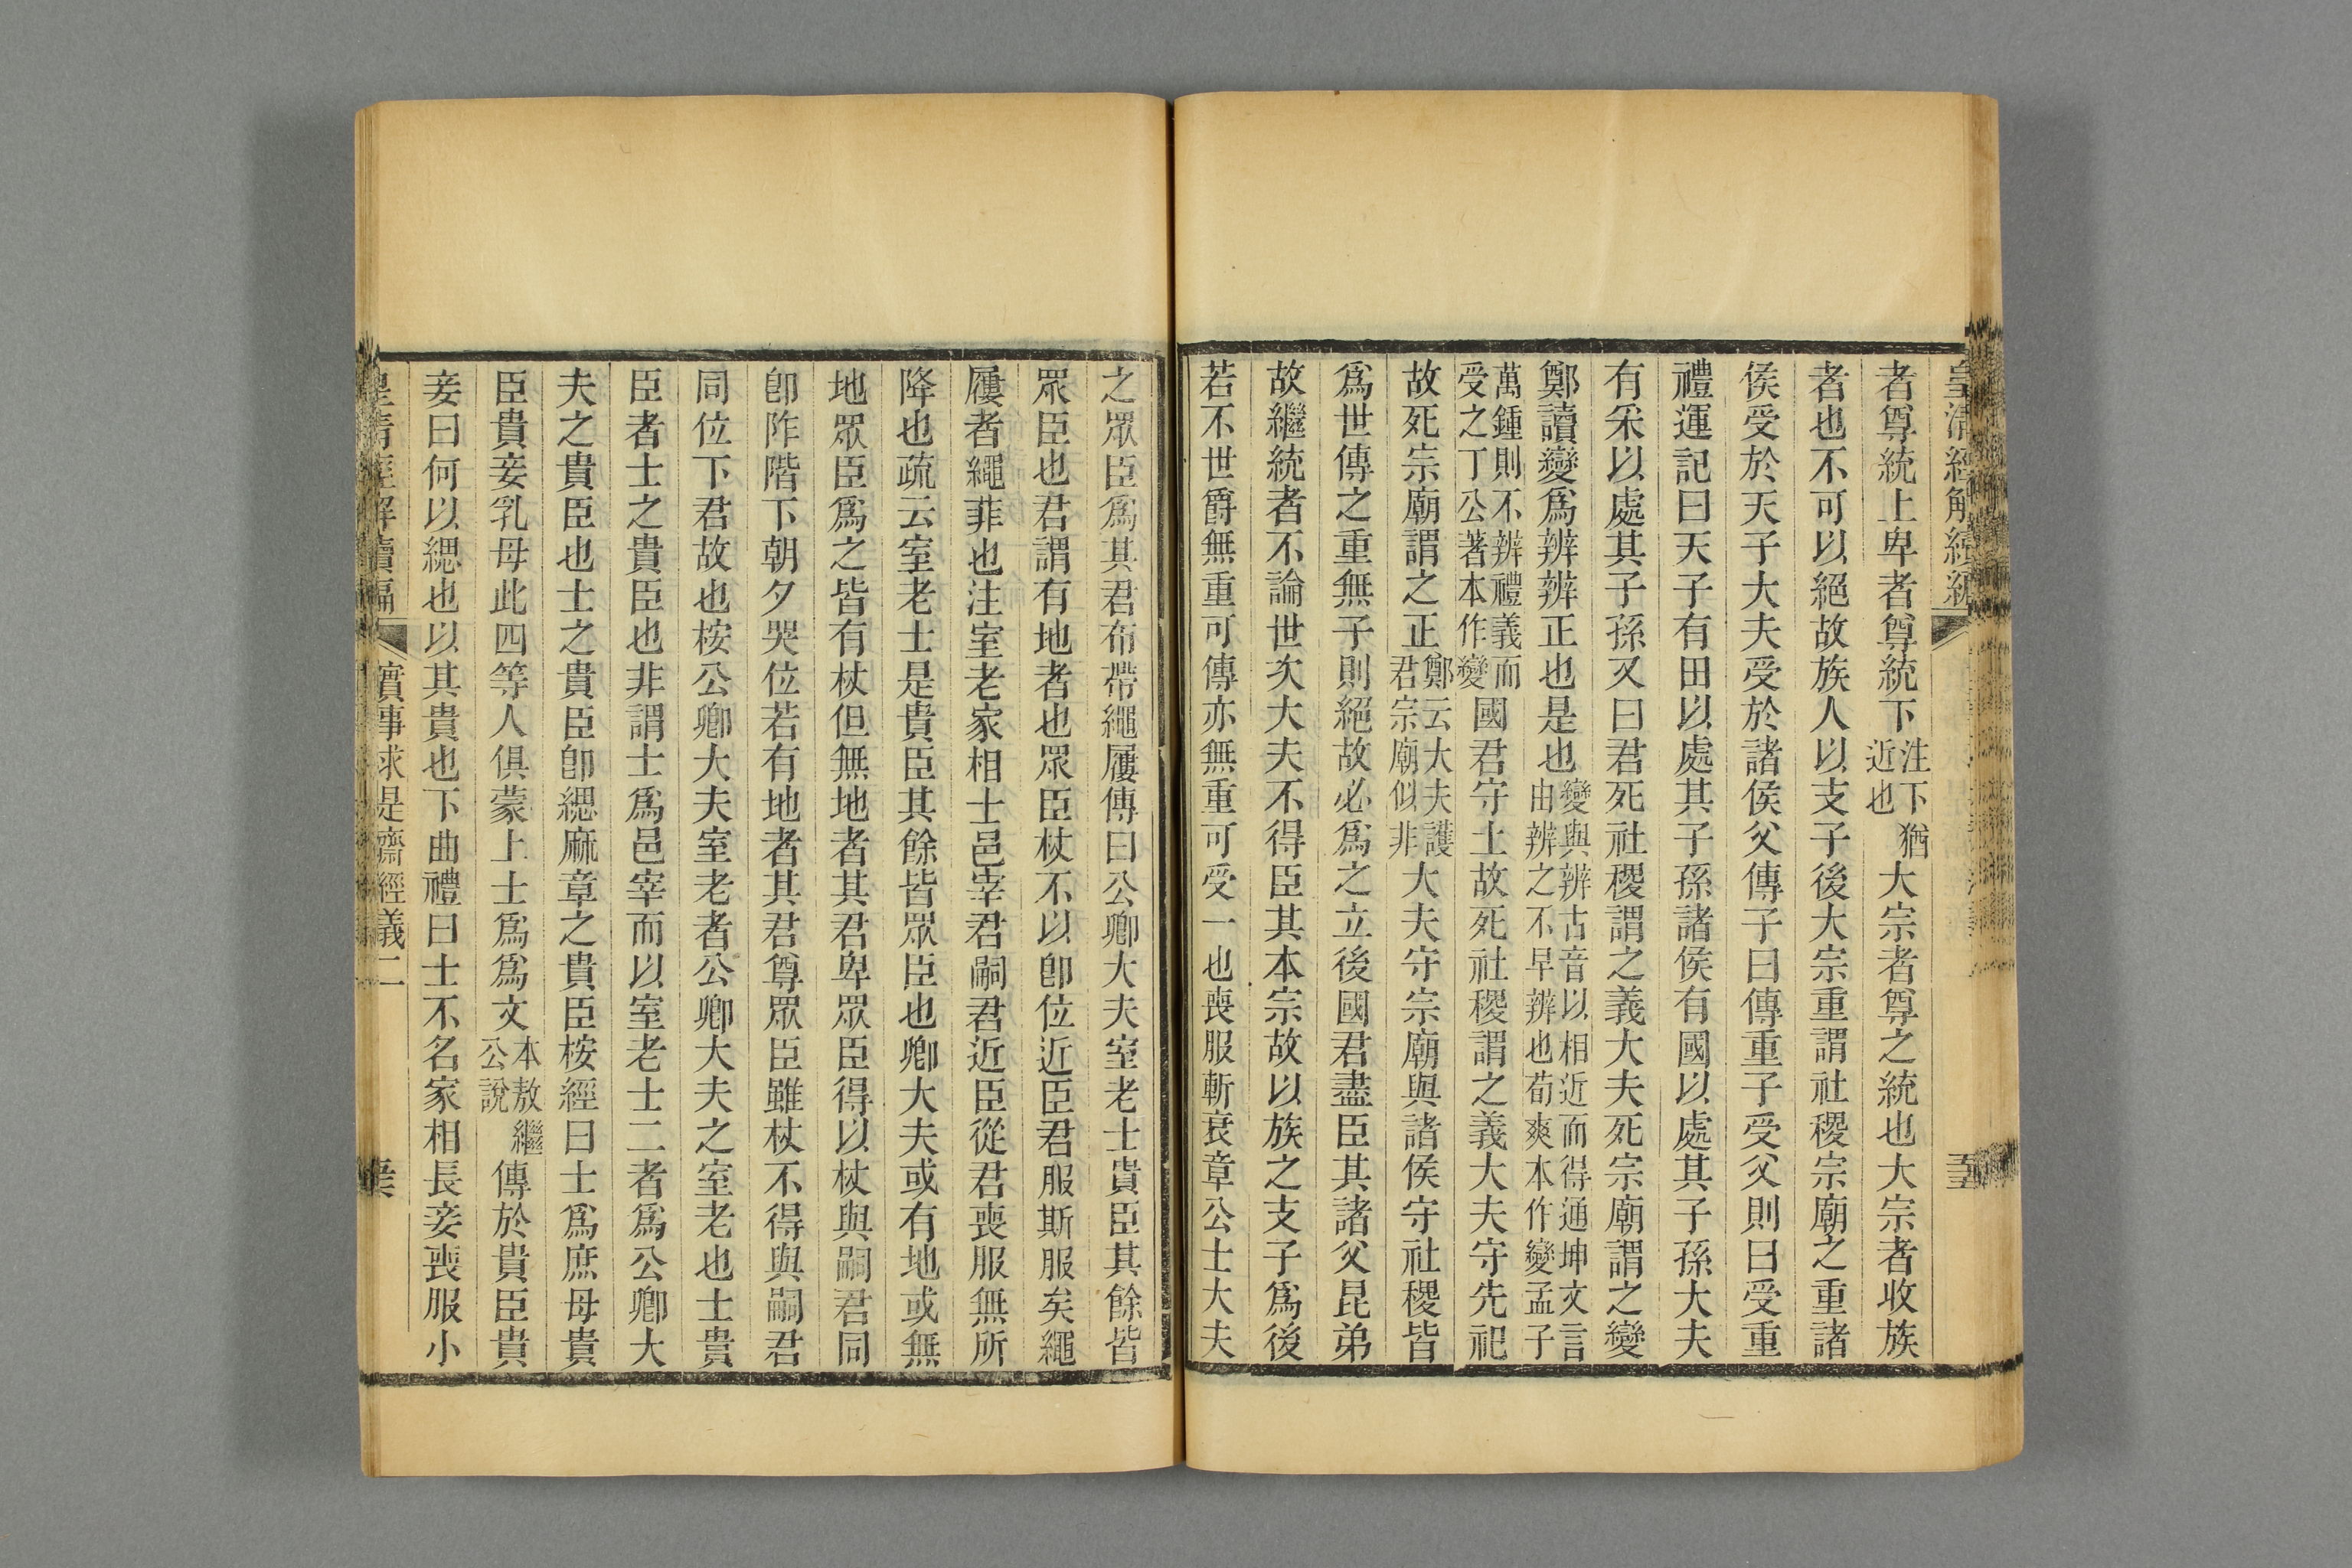 皇清經解續編
五
者尊統上卑者尊統下注下猶近也大宗者尊之統也大宗者收族
者也不可以絕故族人以支子後大宗重謂社稷宗廟之重諸
侯受於天子大夫受於諸侯父傳子曰傳重子受父則曰受重
禮運記曰天子有田以處其子孫諸侯有國以處其子孫大夫
有采以處其子孫又曰君死社稷謂之義大夫死宗廟謂之變
鄭讀變爲辨辨正也是也變與辨古音以相近而得通坤文言由辨之不早辨也荀爽本作變孟子
萬鍾則不辨禮義而受之丁公著本作變國君守土故死社稷謂之義大夫守先祀
故死宗廟謂之正鄭云大夫護君宗廟似非大夫守宗廟與諸侯守社稷皆
爲世傳之重無子則絕故必爲之立後國君盡臣其諸父昆弟
故繼統者不論世次大夫不得臣其本宗故以族之支子爲後
若不世爵無重可傳亦無重可受一也喪服斬衰章公士大夫
之眾臣爲其君布帶繩屨傳曰公卿大夫室老士貴臣其餘皆
眾臣也君謂有地者也眾臣杖不以卽位近臣君服斯服矣繩
屨者繩菲也注室老家相士邑宰君嗣君近臣從君喪服無所
降也疏云室老士是貴臣其餘皆眾臣也卿大夫或有地或無
地眾臣爲之皆有杖但無地者其君卑眾臣得以杖與嗣君同
卽阼階下朝夕哭位若有地者其君尊眾臣雖杖不得與嗣君
同位下君故也桉公卿大夫室老者公卿大夫之室老也士貴
臣者士之貴臣也非謂士爲邑宰而以室老士二者爲公卿大
夫之貴臣也士之貴臣卽緦麻章之貴臣桉經曰士爲庶母貴
臣貴妾乳母此四等人俱蒙上士爲爲文本敖繼公說傳於貴臣貴
妾曰何以緦也以其貴也下曲禮曰士不名家相長妾喪服小
皇清經解續編
實事求是齋經義二